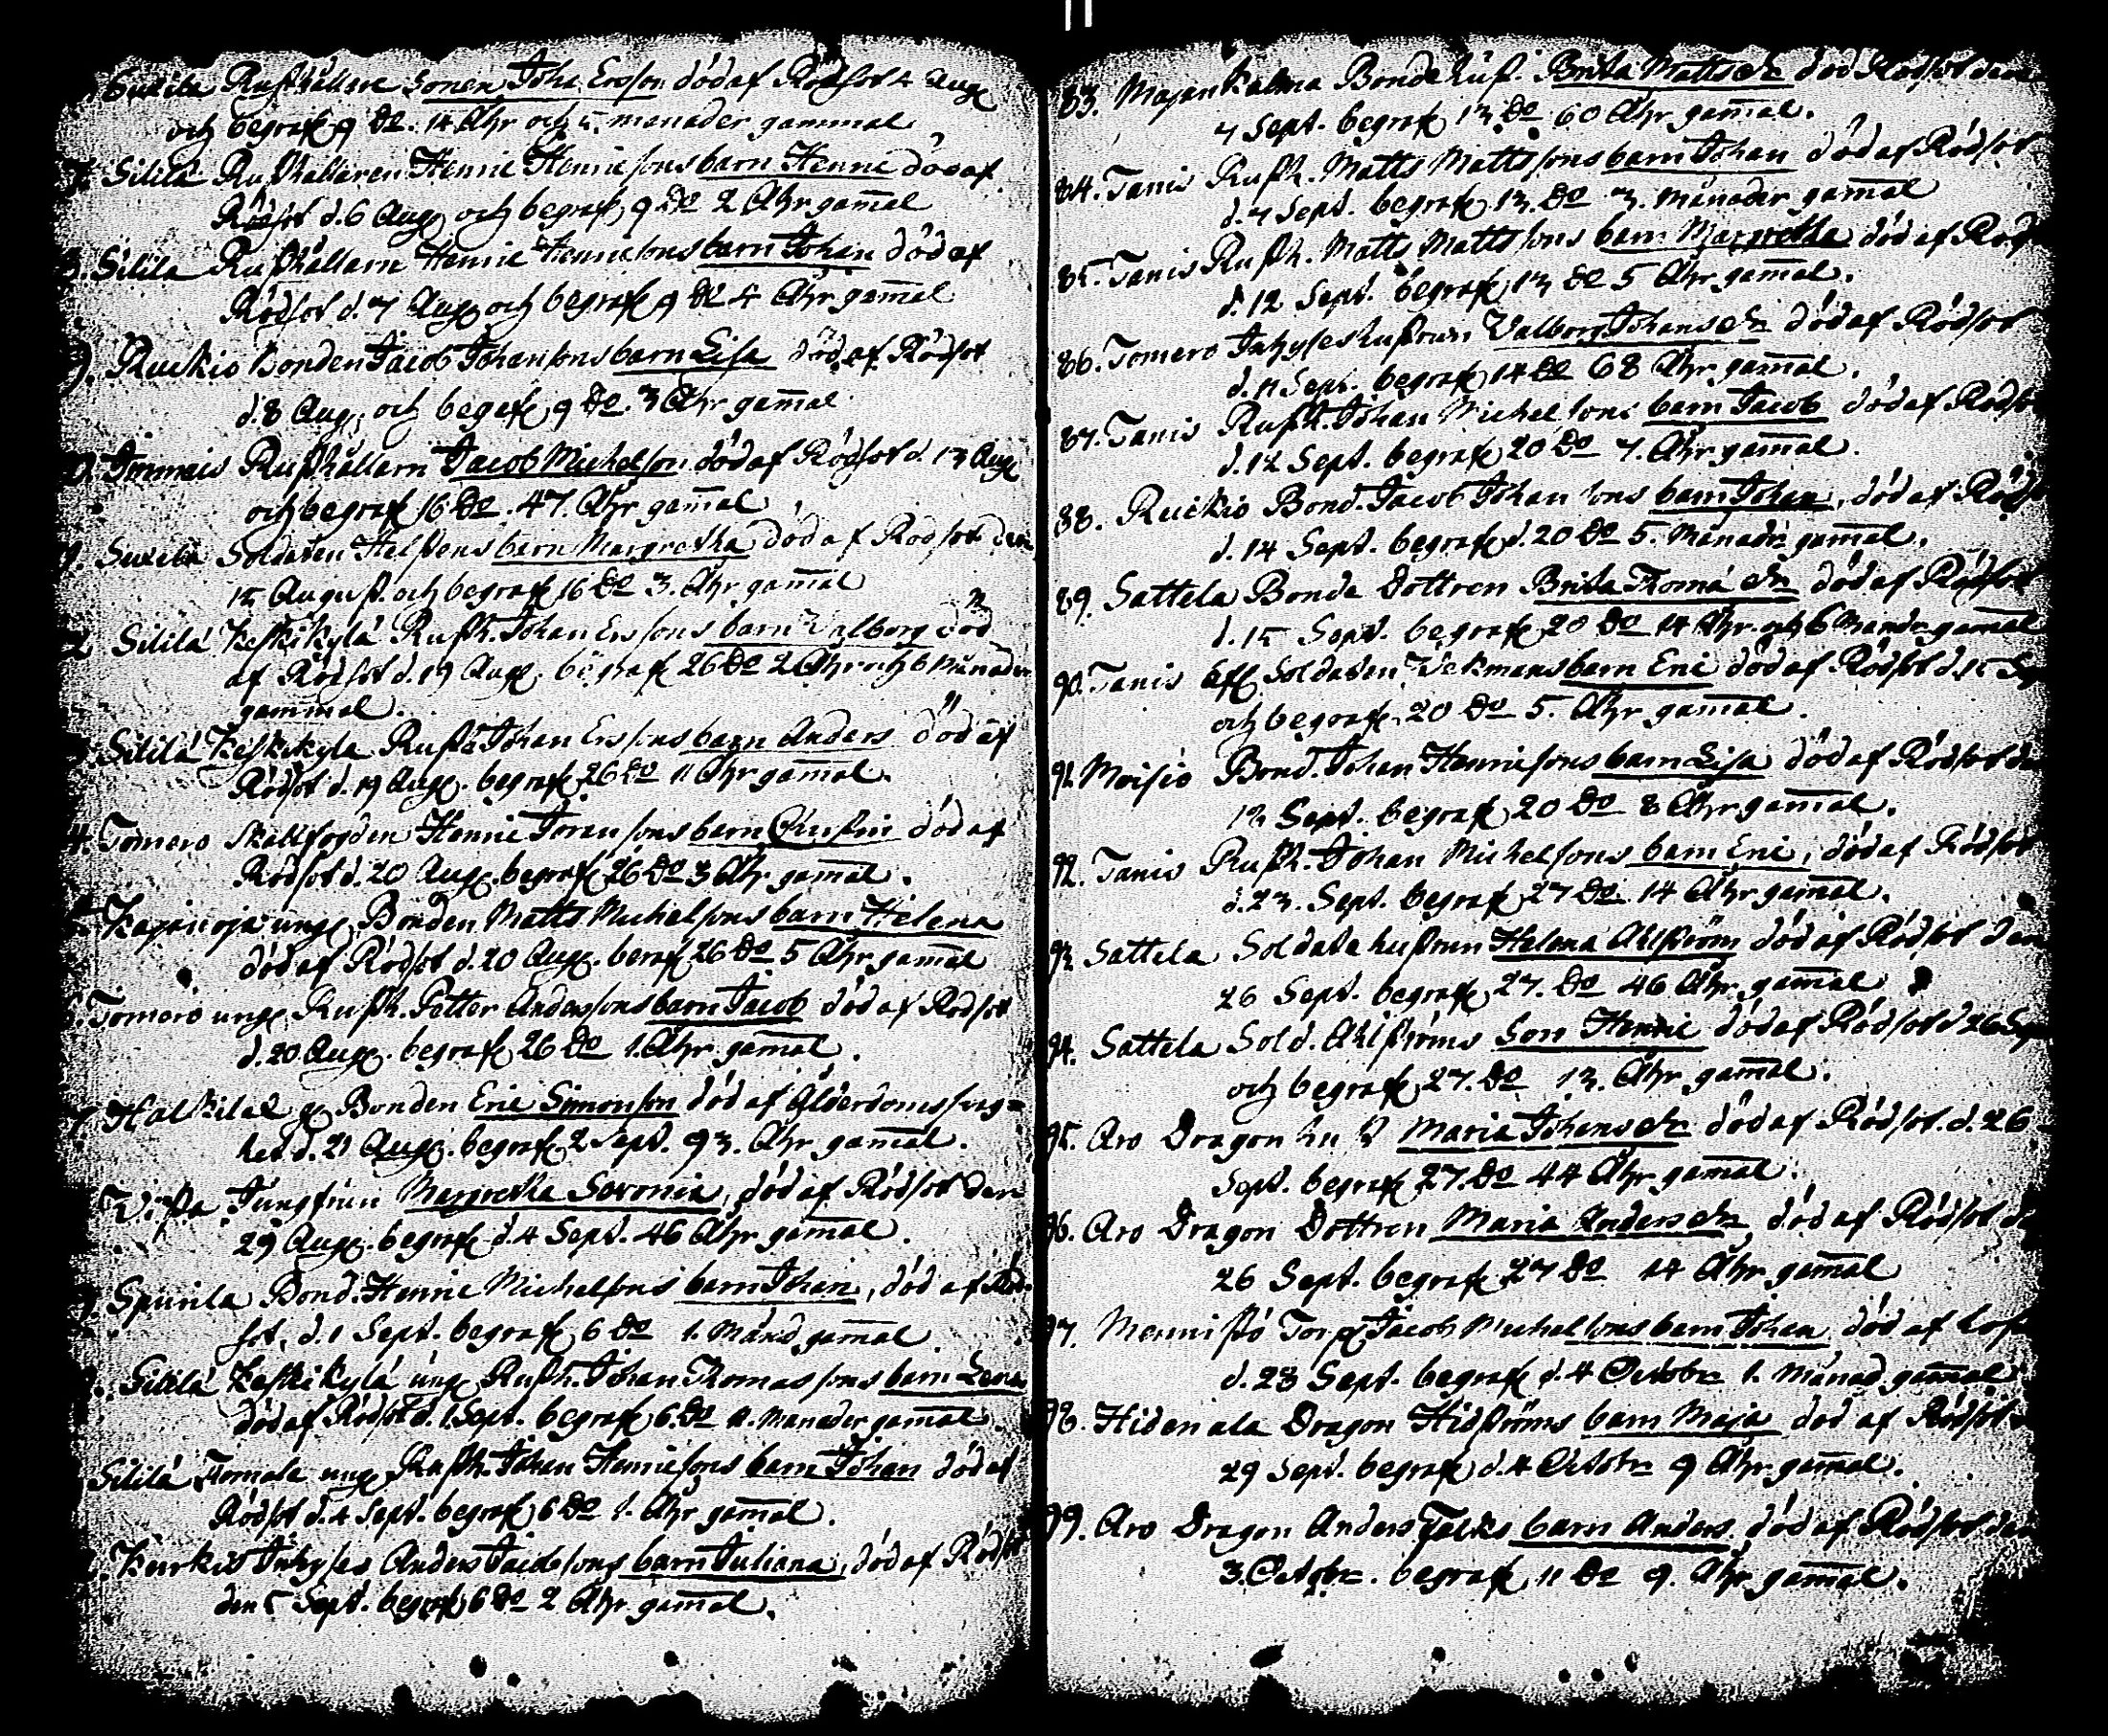 Suxila Rusthållare Sonen Joha Ersson död af Rödsot 4 Aug
och begrafn 9 do. 14 Åhr och 5. månader gammal
Sililä Rusthållaren Henric Henricsons barn Henric död af
Rödsot d. 6 Aug och begrafn 9 do 2 Åhr gamal
Sililä Rusthållarn Henric Henricsons barn Johan död af
Rödsot d. 7 Aug och begrafn 9 do 4 Åhr gamal
9. Ruckio bonden Jacob Johansons barn Lisa död af Rödsot
d. 8 Aug. och begrafn 9 do. 3 Åhr gamal
Rusthållarn Jacob Michelson död af Rödsot d. 13 Aug
och begrafn 16 do. 47. Åhr gamal
Suxela Soldaten barn Margretha död af Rödsot den
15 August och begrafn 16 do 3. Åhr gamal
2 Sililä Keskikylä Rusth. Johan Erssons barn Valborg död
af Rödsot d. 19 Aug. begrafn 26 do 2 Åhr och 6 månader
gammal.
Sililä Keskikyla Rusth Johan Erssons barn Anders död af
Rödsot d. 19 Aug. begrafn 26 do 11 Åhr gamal.
4. Tomero Skallfogden Henric Joransons barn Christin död af
Rödsot d. 20 Aug. begrafn 26 do 3 Åhr gamal.
Kajanoja ung Bonden Matts Michelsons barn Helena
död af Rödsot d. 20 Aug. berafn 26 do 5 Åhr gamal
Tomero ung Rusth. Petter Anderssons barn Jacob död af Rödsot
d. 20 Aug. begrafn 26 do 1. Åhr gamal.
7 Halkilal g Bonden Eric Simonson död af Ålderdoms swag=
het d. 21 Aug. begrafn 2 Sept. 93. Åhr gamal.
Jungfrun Margretha Savonia, död af Rödsot den
29 Aug. begrafn d. 4 Sept. 46 Åhr gamal.
9. Spurila Bond. Henric Michelsons barn Johan, död af Röd-
sot, d. 1 Sept. begrafn 6 do 1. Månd gamal
Sililä Keskikylä ung Rusth. Johan Thomassons barn Lena
död af Rödsot d. 1. Sept. begrafn 6. do 11. Månader gamal.
Sililä Tomola ung Rusth. Johan Henricsons barn Johan död af
Rödsot d. 4 Sept. begrafn 6 do 1. Åhr gamal.
Kurkio Inhyses Anders Jacobsons barn Juliana, död af Rödsot
den 5 Sept. begrafn 6 do 2 Åhr gamal.
83. Majankalma Bonde hust. Brita Mattsdr död Rödsot den
7 Sept. begrafn 13 do 60 Åhr gamal.
84. Tanis Rusth. Matts Mattssons barn Johan död af Rödsot
d. 7 Sept. begrafn 13. do 3. månader gamal
85. Tanis Rusth. Matts Mattssons barn Margretha död af Röds
d. 12 Sept. begrafn 13 do 5 Åhr gamal.
86. Tomero Inhyses hustrun Valborg Johansdr död af Rödsot
d. 11 Sept. begrafn 14 do 68 Åhr gamal.
87. Tanis Rusth. Johan Michelsons barn Jacob död af Rödso
d. 12 Sept. begrafn 20 do 7. Åhr gamal.
88. Ruckio Bond. Jacob Johansons barn Johan, död af Röds
d. 14 Sept. begrafn d. 20 do 5. Månadr gamal.
89. Sattela Bonde Dottren Brita Thomä dr död af Rödsot
d. 15 Sept. begrafn 20 do 14 Åhr och 6 Månadr gamal
90. Tanis Soldaten Wekmans barn Eric död af Rödsot d. 15 Sep
och begrafn. 20 do 5. Åhr gamal.
91. Moisio Bond. Johan Henricsons barn Lisa död af Rödsot de
12 Sept. begrafn 20 do 8 Åhr gamal.
92. Tanis Rusth. Johan Michelsons barn Eric, död af Rödsot
d. 23. Sept. begrafn 27 do. 14 Åhr gamal.
93 Sattela Soldate hustrun Helena Ahlström död af Rödsot den
26 Sept. begrafn 27. do 46 Åhr gamal
94. Sattela Sold. Ahlströms Son Henric död af Rödsot d 26 Sep
och begrafn 27. do 13. Åhr gamal.
95. Aro Dragon hu Maria Johansdr död af Rödsot. d. 26
Sept. begrafn 27. do 44 Åhr gamal.
96. Aro Dragon Dottren Maria Andersdr, död af Rödsot d
26 Sept. begrafn 27 do 14 Åhr gamal
97. Mennistö Torp Jacob Michelsons barn Johan död af
d. 28 Sept. begrafn d. 4 Octobr 1. Månad gamal
98. Hidenala Dragon Hidströms barn Maja död af Rödsot
29 Sept. begrafn d. 4 Octobr 9 Åhr gamal.
99. Aro Dragon Anders Falks barn Anders, död af Rödsot den
3. Octobr. begrafn 11 do 9. Åhr gamal.